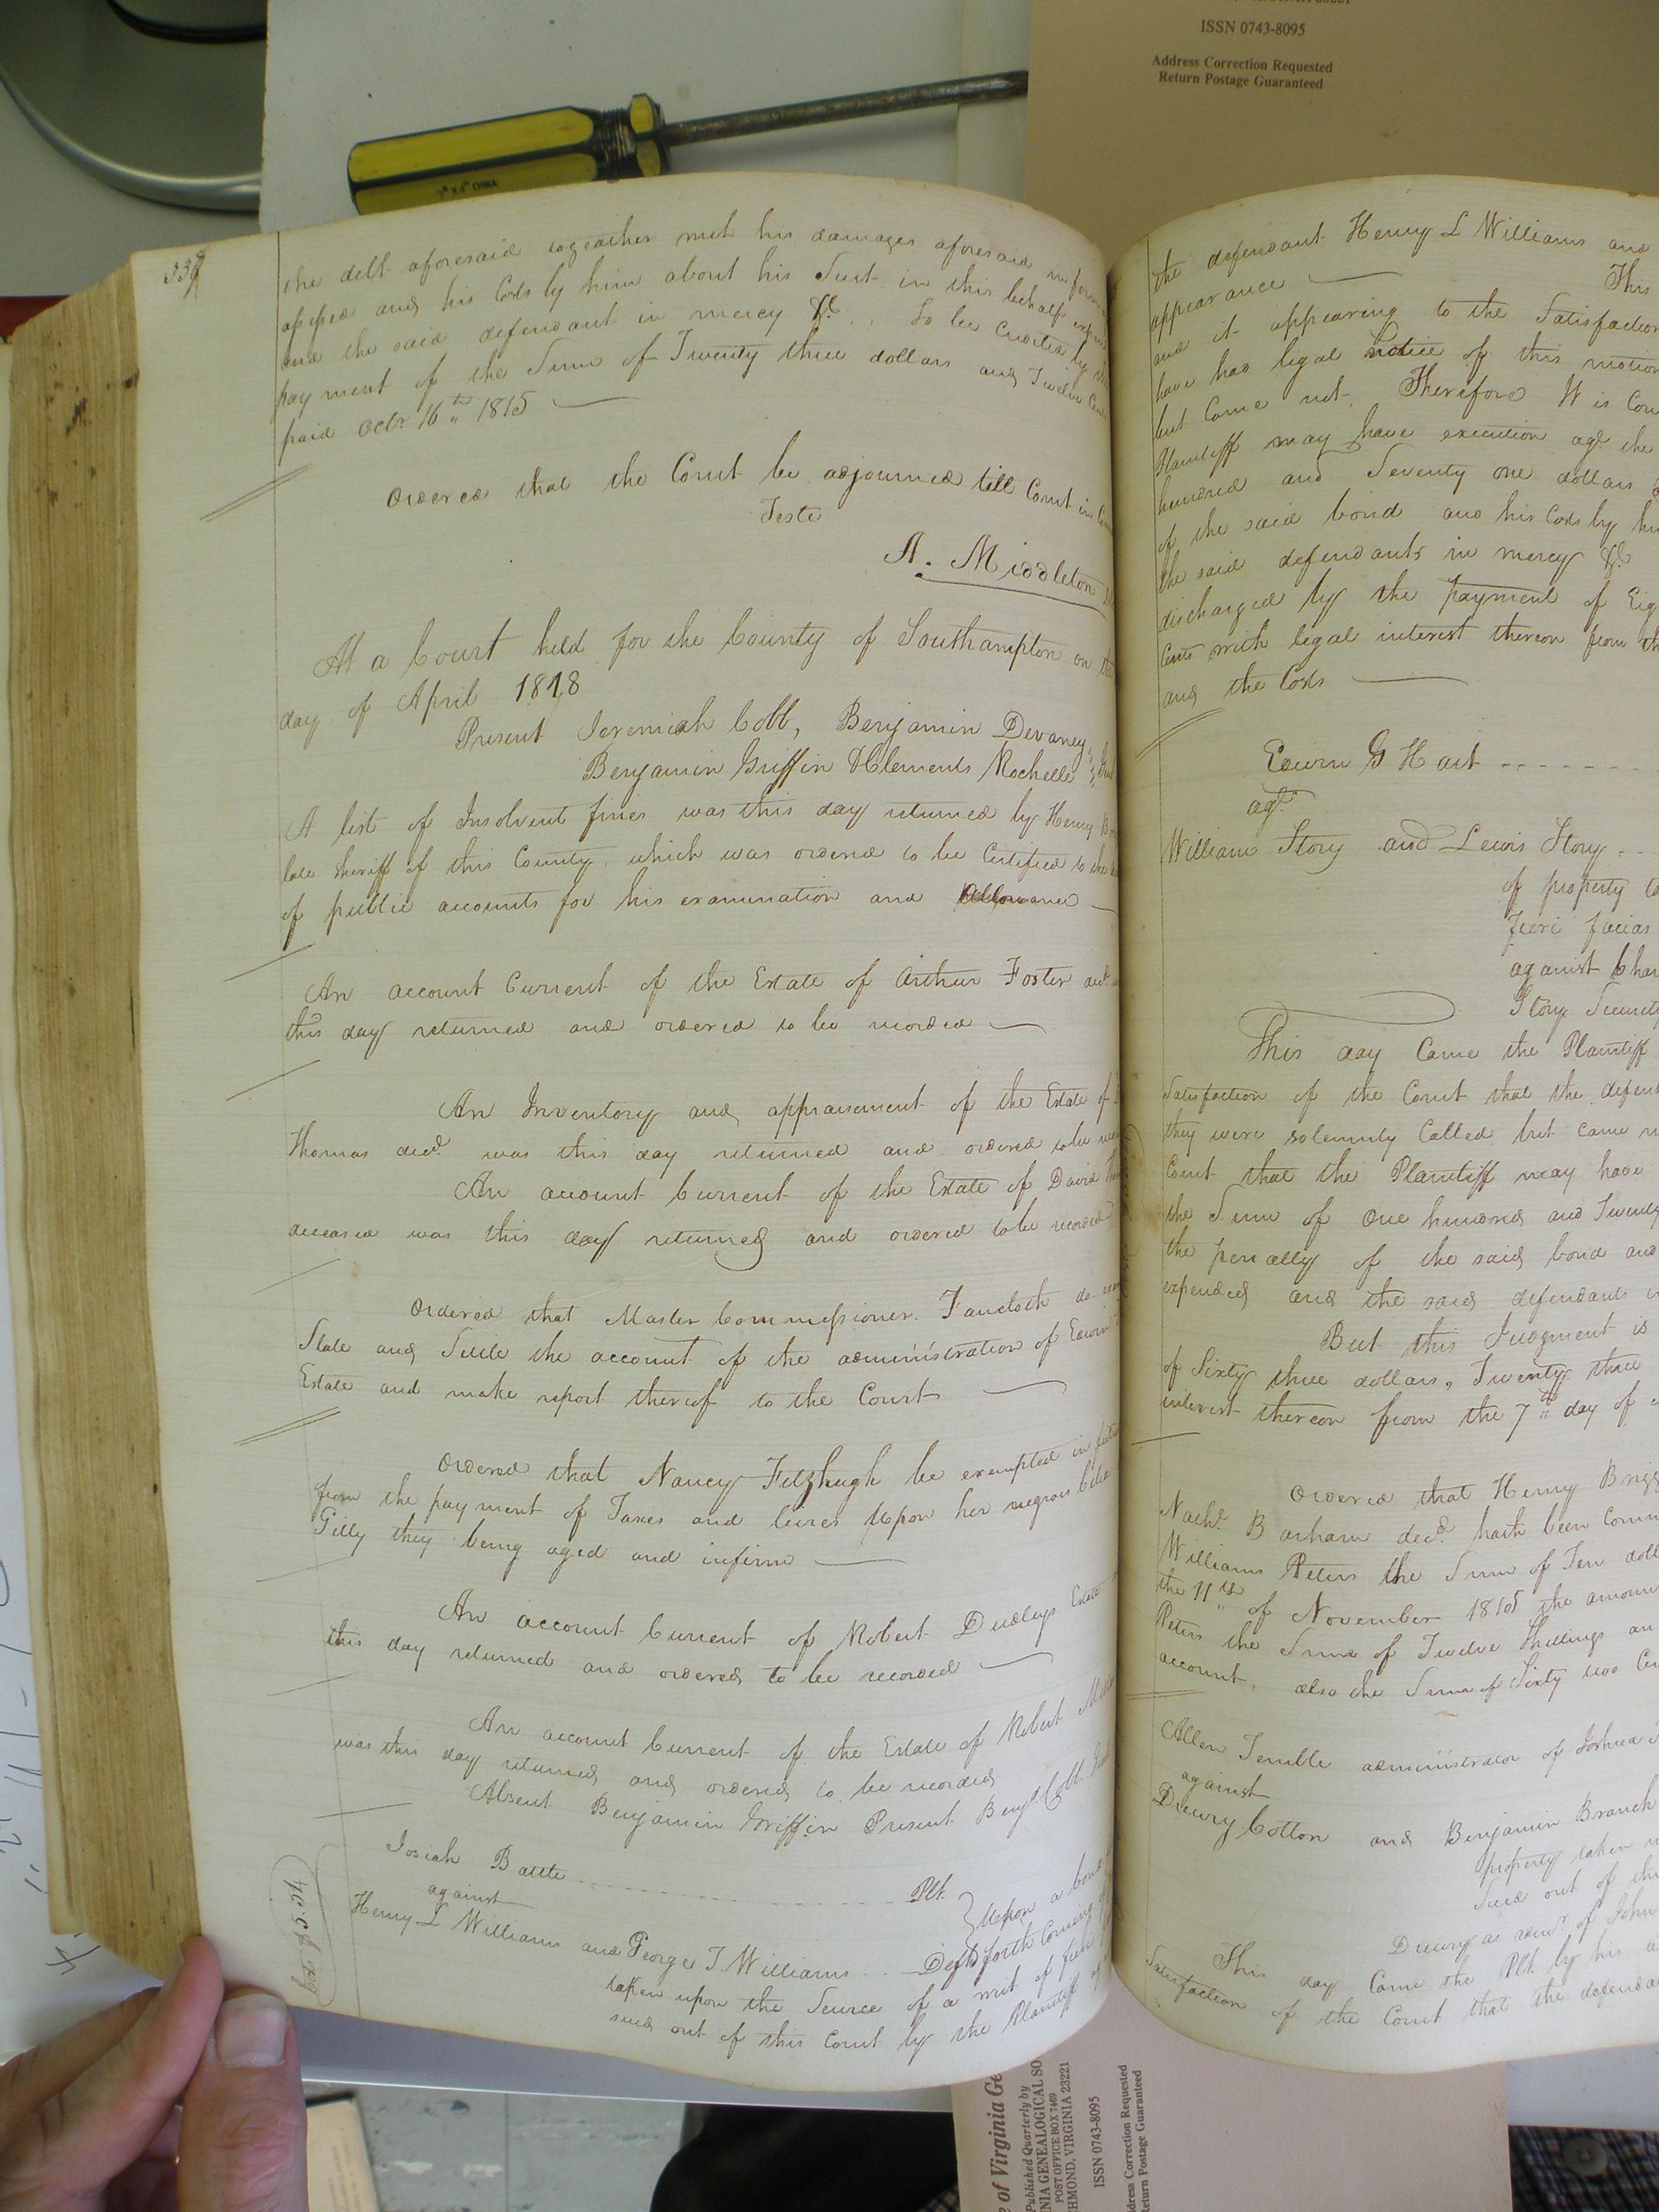 ISSN 0743-8095
Address Correction Requested
Return Postage Guaranteed
the debt aforesaid together with his damages aforesaid in form
assessed and his Costs by him about his Suit in this behalf
and the said defendant in mercy &c. To be Credited by
payment of the Sum of Twenty three dollars and Twelve Cents
paid Octr. 16th 1815
Ordered that the Court be adjourned till Court in
Teste
A. Middleton
At a Court held for the County of Southampton on
day of April 1818
Present Jeremiah Cobb, Benjamin Devaney,
Benjamin Griffin & Clements Rochelle
A list of Insolvent fines was this day returned by Henry
late Sheriff of this County which was ordered to be Certified to the
of public accounts for his examination and Allowance
An account Current of the Estate of Arthur Foster decd.
this day returned and ordered to be recorded
An Inventory and appraisement of the Estate of
Thomas decd. was this day returned and ordered to be
An account Current of the Estate of David
deceased was this day returned and ordered to be recorded
Ordered that Master Commissioner Fauclock do
State and Settle the account of the administration of Edwin
Estate and make report thereof to the Court
Ordered that Nancy Fitzhugh be exempted in
from the payment of Taxes and levies Upon her negroes
they being aged and infirm
An account Current of Robert Dudleys Estate
this day returned and ordered to be recorded
An account Current of the Estate of Robert
was this day returned and ordered to be recorded
Absent Benjamin Griffin Present Benja Cobb
Josiah Battle Plt.
against
Henry L Williams and George T. Williams Defts
Upon a bond
forth Coming
taken upon the Service of a writ of fieri
sued out of this Court by the Plaintiff
the defendant Henry L Williams and
appearance This
and it appearing to the Satisfaction
have had legal notice of this motion
but Came not. Therefore It is
Plaintiff may have execution agt. the
hundred and Seventy one dollars
of the said bond and his Costs by
the said defendants in mercy &c.
discharged by the payment of
Cents with legal interest thereon from
and the Costs
Edwin G Hart
agt.
William Story and Lewis Story
of property
fieri facias
against
Story Security
This day Came the Plaintiff
Satisfaction of the Court that the
they were solemnly Called but came
Court that the Plaintiff may have
the Sum of One hundred and Twenty
the penalty of the said bond and
expended and the said defendants
But this Judgment is
of Sixty three dollars, Twenty three
interest thereon from the 7th day of
Ordered that Henry Briggs
Nathl. Barham decd. hath been
Williams Peters the Sum of Ten
the 11th of November 1815 the amount
Peters the Sum of Twelve Shillings
account, also the Sum of Sixty two
Allen Temble administrator of Joshua
against
Drewry Cotton and Benjamin Branch
property taken
Sued out of
Drewry as admr. of John
This day Came the Plt. by his
Satisfaction of the Court that the
of Virginia
Published Quarterly by
GENEALOGICAL
POST OFFICE BOX 7469
VIRGINIA 23221
ISSN 0743-8095
Address Correction Requested
Return Postage Guaranteed